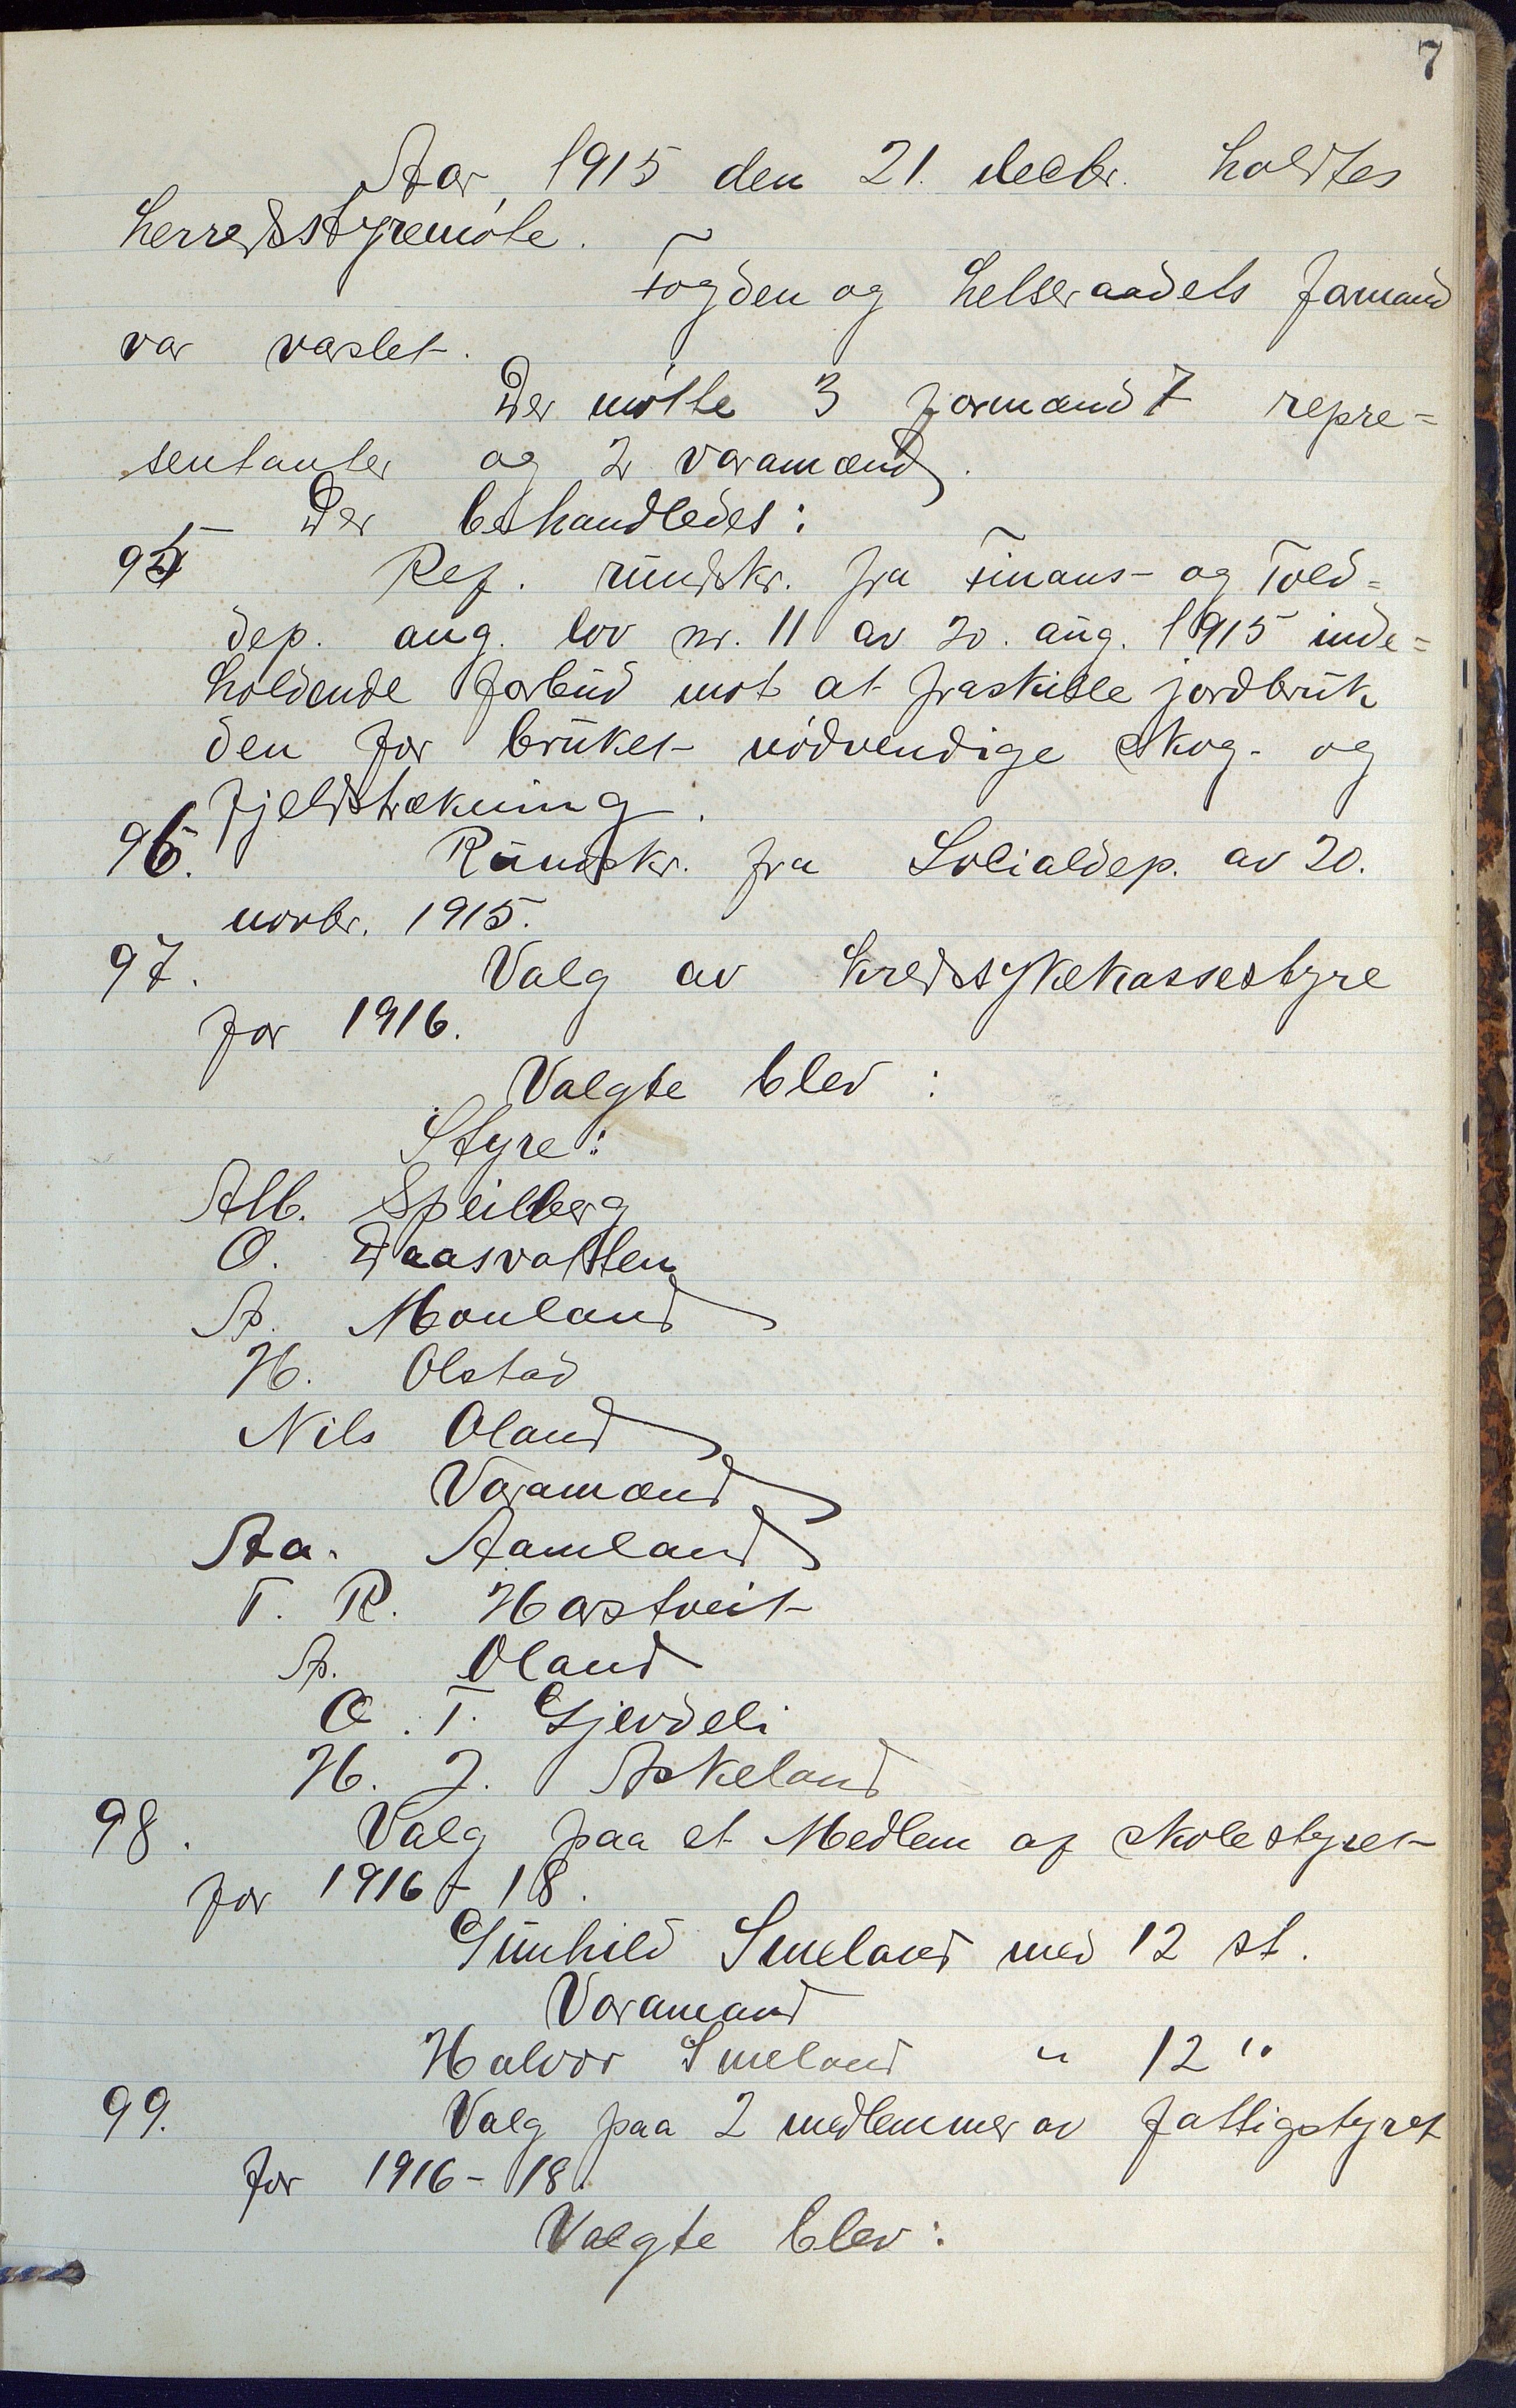 7
Aar 1915 den 21. decbr. holdtes
herredsstyremøte.
Fogden og helseraadets formand
var varslet.
Der møtte 3 formænd 7 repre=
sentanter og 2 varamænd.
Der behandledes:
95 Ref. rundskr. fra Finans- og Told=
dep. ang. lov nr. 11 av 20. aug. 1915 inde=
holdende forbud mot at fraskille jordbruk
den for bruket nødvendige skog- og
fjeldstrækning.
96. Rundskr. fra Socialdep. av 20.
novbr. 1915.
97. Valg av kredssykekassestyre
for 1916.
Valgte blev:
Styre:
Alb. Speilberg
O. Daasvatten
A. Monland
H. Olstad
Nils Oland
Varamænd
Aa. Aamland
T. R. Harstveit
A. Oland
O. T. Gjevdeli
H. J. Askeland
98. Valg paa et Medlem af skolestyret
for 1916 - 18.
Gunhild Smeland med 12 st.
Varamand
Halvor Smeland " 12 "
99. Valg paa 2 medlemmer av fattigstyret
for 1916 - 18.
Valgte blev: